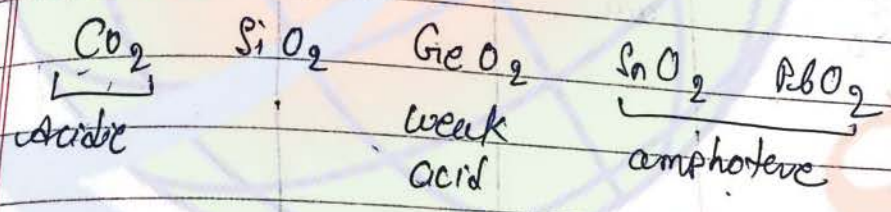 CO₂ SiO₂ GeO₂ SnO₂ PbO₂
Acidic weak amphotere
acid